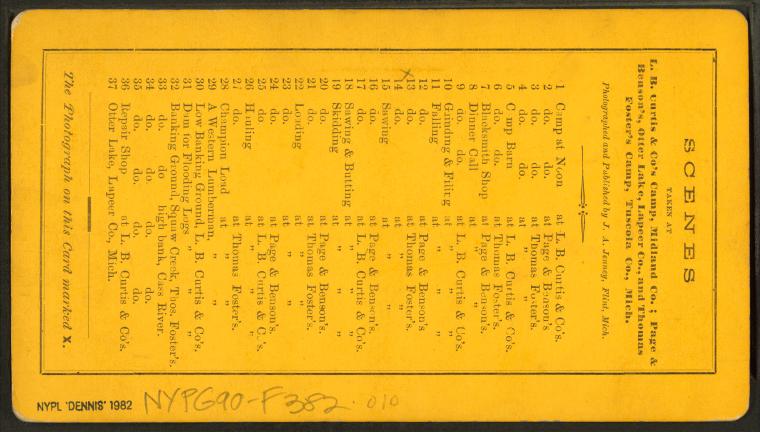 SCENES
TAKEN AT
L. B. Curtis & Co's Camp, Midland Co. ; Page &
Benson's, Otter Lake, Lapeer Co., and Thomas
Foster's Camp, Tuscola Co., Mich.
Photographed and Published by J. A. Jenney, Flint, Mich.
1 Camp at Noon at L. B. Curtis & Co's.
2 do. do. at Page & Benson's
3 do. do. at Thomas Foster's.
4 do. do. at " "
5 Camp Barn at L. B. Curtis & Co's.
6 do. do. at Thomas Foster's.
7 Blacksmith Shop at Page & Benson's.
8 Dinner Call at " "
9 do. do. at L. B. Curtis & Co's.
10 Grinding & Filing at " "
11 Falling at " "
12 do. at Page & Benson's
X 13 do. at Thomas Foster's.
14 do. at " "
15 Sawing at " "
16 do. at Page & Benson's.
17 do. at L. B. Curtis & Co's.
18 Sawing & Butting at " "
19 Skidding at " "
20 do. at Page & Benson's.
21 do. at Thomas Foster's.
22 Loading at " "
23 do. at " "
24 do. at Page & Benson's.
25 do. at L. B. Curtis & Co's.
26 Hauling at " "
27 do. at Thomas Foster's.
28 Champion Load " "
29 A Western Lumberman, " "
30 Low Banking Ground, L. B. Curtis & Co's.
31 Dam for Flooding Logs " "
32 Banking Ground, Squaw Creek, Thos. Foster's.
33 do. do high bank, Cass River.
34 do. do. do. do.
35 do. do. do. do.
36 Repair Shop at L. B. Curtis & Co's.
37 Otter Lake, Lapeer Co., Mich.
The Photograph on this Card marked X.
NYPL 'DENNIS' 1982
NYPG90-F382 .010